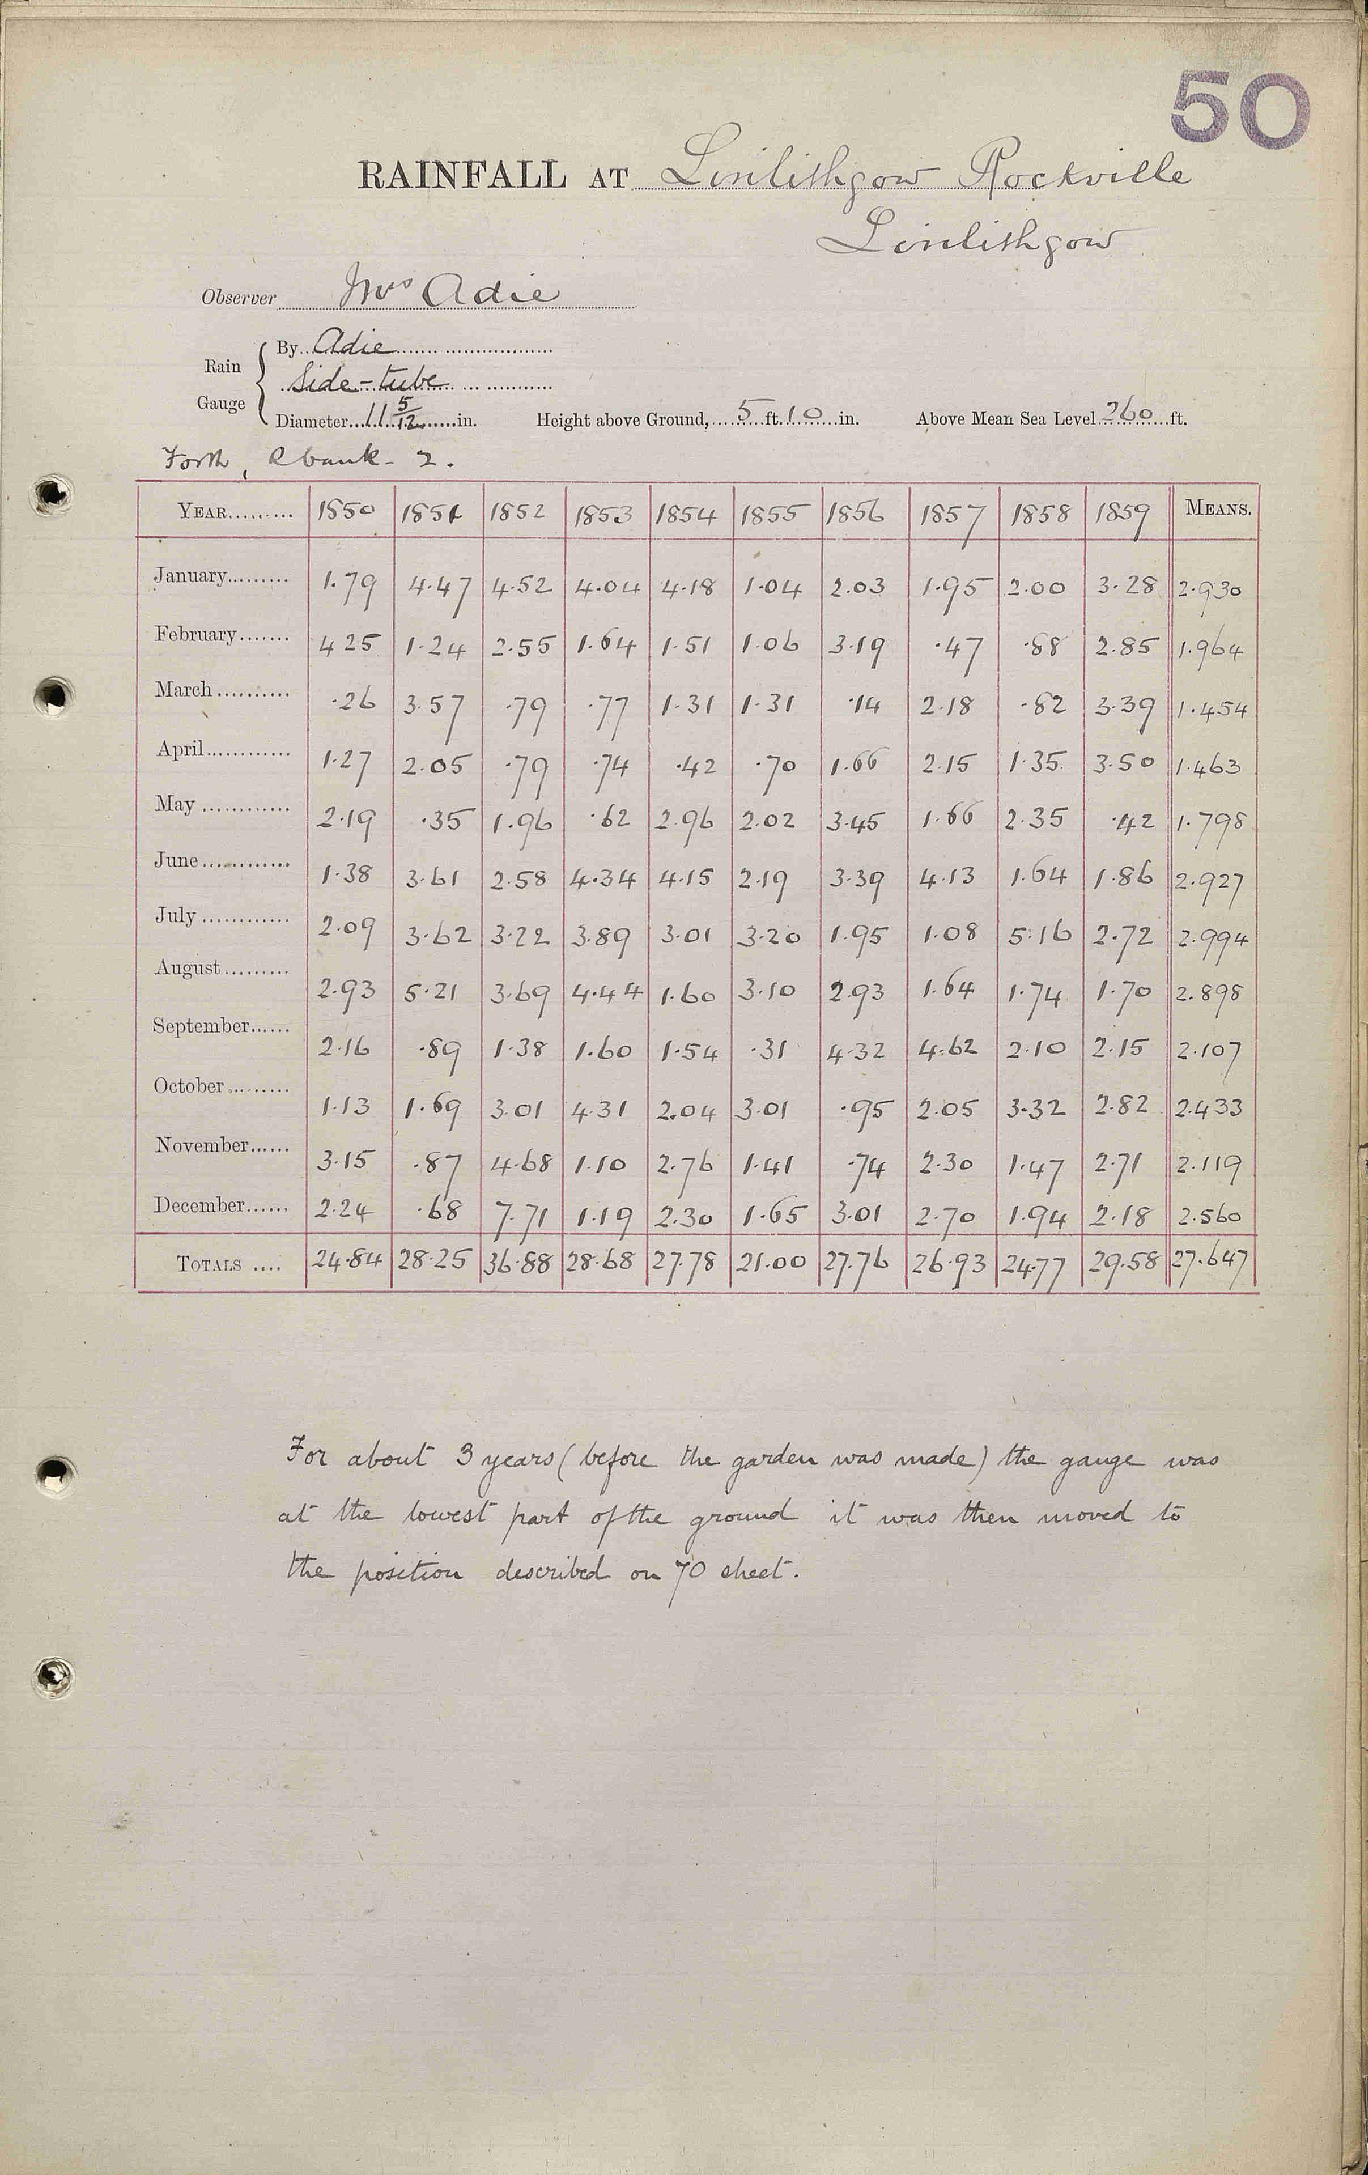 50
RAINFALL AT Linlithgow Rockville
Linlithgow
Observer Mrs Adie
Rain Gauge { By Adie
Side-tube
Diameter 11 5/12 in. Height above Ground, 5 ft. 10 in. Above Mean Sea Level 260 ft.
Forth, R bank - 2.
YEAR 1850 1851 1852 1853 1854 1855 1856 1857 1858 1859 MEANS.
January 1.79 4.47 4.52 4.04 4.18 1.04 2.03 1.95 2.00 3.28 2.930
February 4 25 1.24 2.55 1.64 1.51 1.06 3.19 .47 .88 2.85 1.964
March .26 3.57 .79 .77 1.31 1.31 .14 2.18 .82 3.39 1.454
April 1.27 2.05 .79 .74 .42 .70 1.66 2.15 1.35 3.50 1.463
May 2.19 .35 1.96 .62 2.96 2.02 3.45 1.66 2.35 .42 1.798
June 1.38 3.61 2.58 4.34 4.15 2.19 3.39 4.13 1.64 1.86 2.927
July 2.09 3.62 3.22 3.89 3.01 3.20 1.95 1.08 5.16 2.72 2.994
August 2.93 5.21 3.69 4.44 1.60 3.10 2.93 1.64 1.74 1.70 2.898
September 2.16 .89 1.38 1.60 1.54 .31 4.32 4.62 2.10 2.15 2.107
October 1.13 1.69 3.01 4.31 2.04 3.01 .95 2.05 3.32 2.82 2.433
November 3.15 .87 4.68 1.10 2.76 1.41 .74 2.30 1.47 2.71 2.119
December 2.24 .68 7.71 1.19 2.30 1.65 3.01 2.70 1.94 2.18 2.560
TOTALS 24.84 28.25 36.88 28.68 27.78 21.00 27.76 26.93 24.77 29.58 27.647
For about 3 years (before the garden was made) the gauge was
at the lowest part of the ground it was then moved to
the position described on 70 sheet.